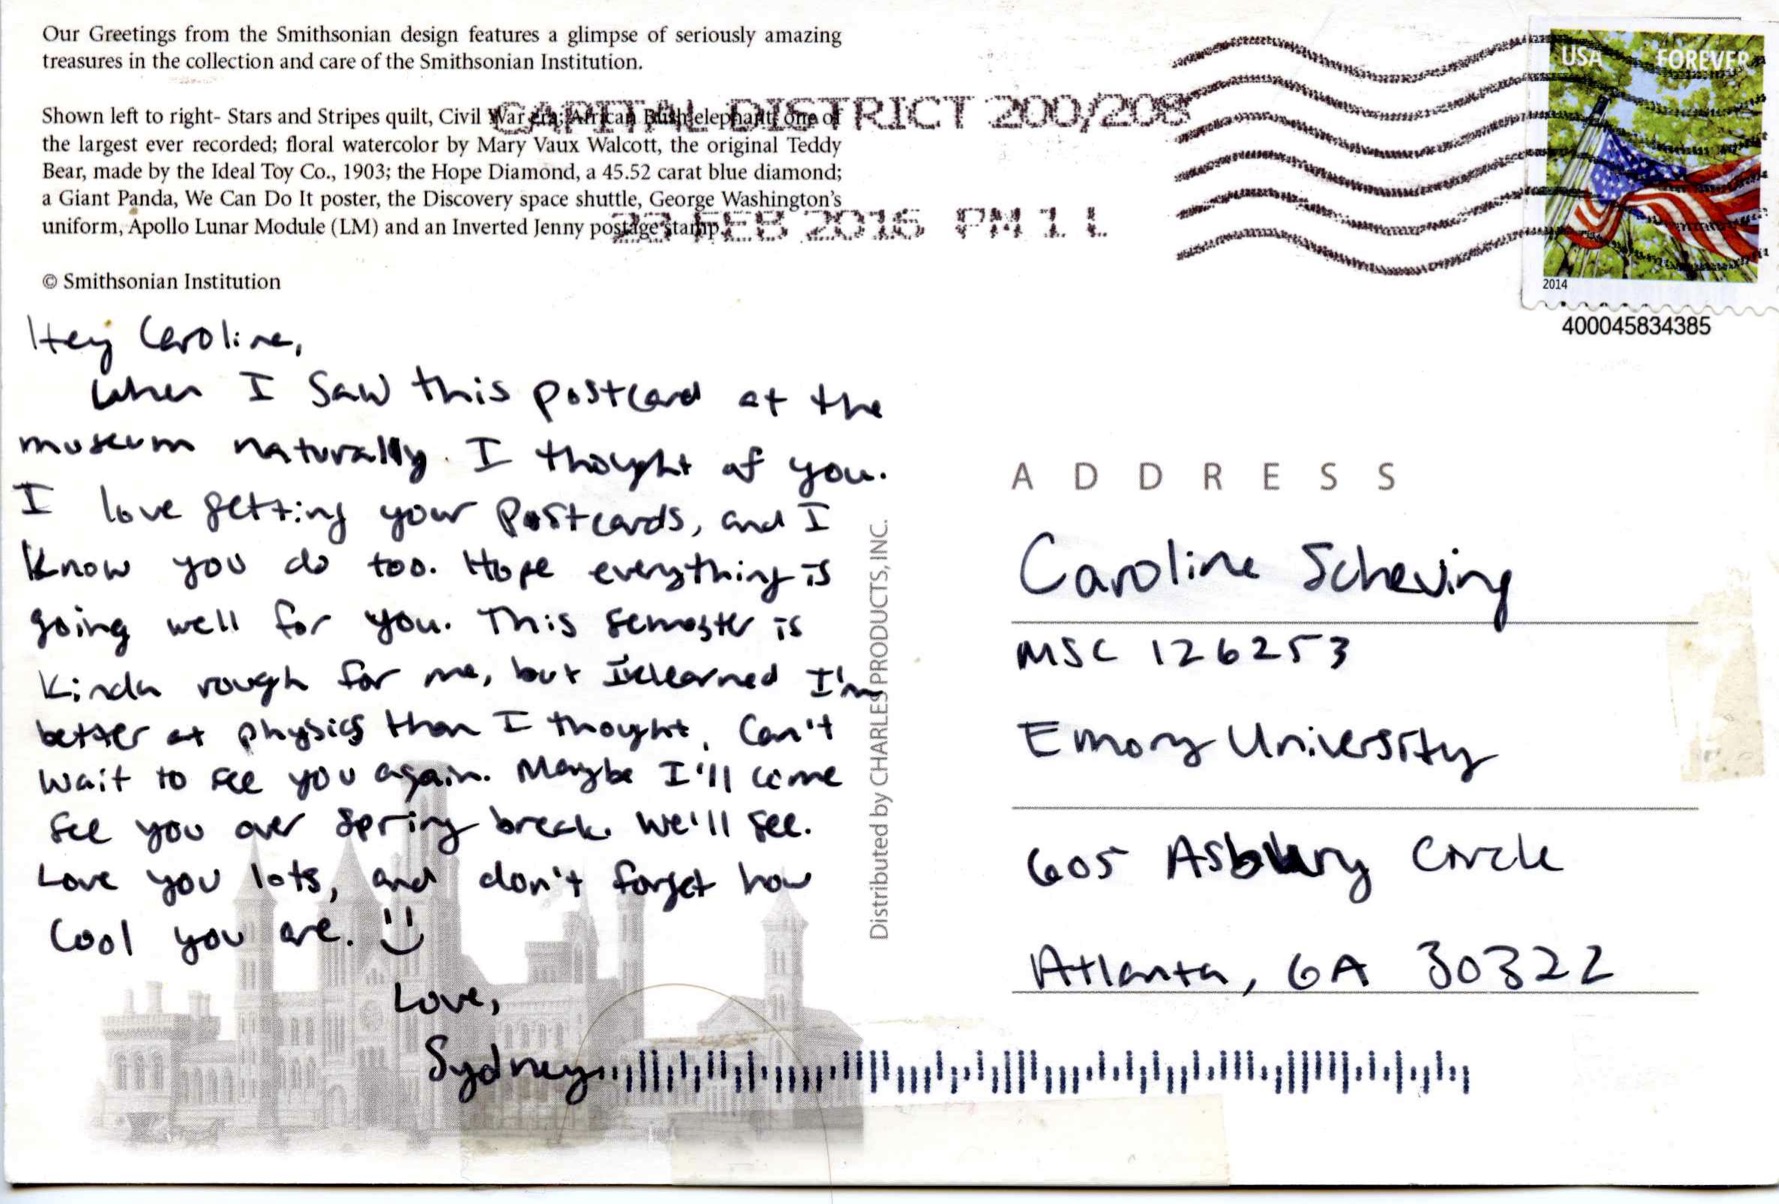 Our Greetings from the Smithsonian design features a glimpse of seriously amazing
treasures in the collection and care of the Smithsonian Institution.
Shown left to right- Stars and Stripes quilt, Civil War era; African Bush elephant, one of
the largest ever recorded; floral watercolor by Mary Vaux Walcott, the original Teddy
Bear, made by the Ideal Toy Co., 1903; the Hope Diamond, a 45.52 carat blue diamond;
a Giant Panda, We Can Do It poster, the Discovery space shuttle, George Washington's
uniform, Apollo Lunar Module (LM) and an Inverted Jenny postage stamp.
© Smithsonian Institution
CAPITAL DISTRICT 200/208
FEB 2016 PM 1 L
USA FOREVER
2014
400045834385
Hey Caroline,
When I saw this postcard at the
museum naturally I thought of you.
I love getting your postcards, and I
know you do too. Hope everything is
going well for you. This semester is
kinda rough for me, but I've learned I'm
better at physics than I thought. Can't
wait to see you again. Maybe I'll come
see you over spring break. We'll see.
Love you lots, and don't forget how
cool you are.
Love,
Sydney
Distributed by CHARLES PRODUCTS, INC.
ADDRESS
Caroline Scheving
MSC 126253
Emory University
605 Asbury Circle
Atlanta, GA 30322